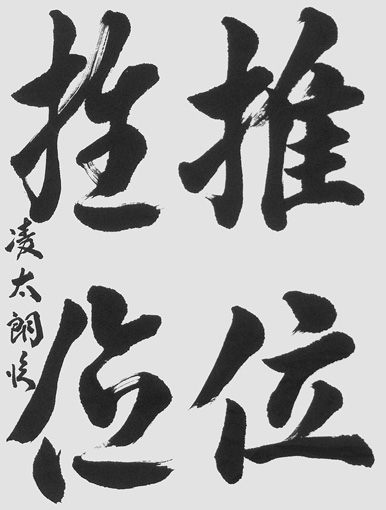 推位
推位
凌太朗